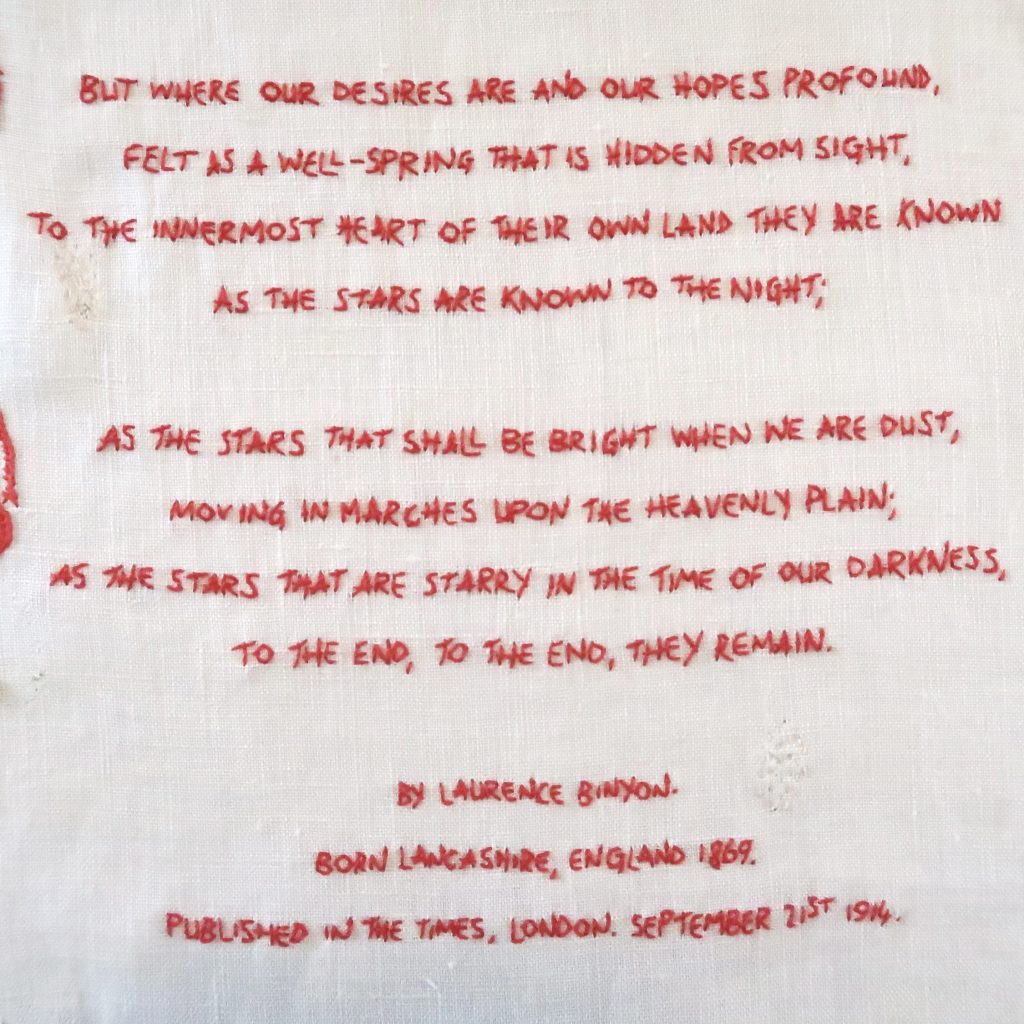 BUT WHERE OUR DESIRES ARE AND OUR HOPES PROFOUND,
FELT AS A WELL-SPRING THAT IS HIDDEN FROM SIGHT,
TO THE INNERMOST HEART OF THEIR OWN LAND THEY ARE KNOWN
AS THE STARS ARE KNOWN TO THE NIGHT;
AS THE STARS THAT SHALL BE BRIGHT WHEN WE ARE DUST,
MOVING IN MARCHES UPON THE HEAVENLY PLAIN;
AS THE STARS THAT ARE STARRY IN THE TIME OF OUR DARKNESS,
TO THE END, TO THE END, THEY REMAIN.
BY LAURENCE BINYON.
BORN LANCASHIRE, ENGLAND 1869.
PUBLISHED IN THE TIMES, LONDON. SEPTEMBER 21ST 1914.